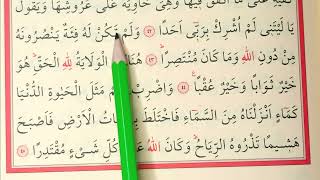 عَلٰى مَٓا اَنْفَقَ ف۪يهَا وَهِيَ خَاوِيَةٌ عَلٰى عُرُوشِهَا وَيَقُولُ
يَا لَيْتَن۪ي لَمْ اُشْرِكْ بِرَبّ۪ٓي اَحَدًا ﴿٤٢﴾ وَلَمْ تَكُنْ لَهُ فِئَةٌ يَنْصُرُونَهُ
مِنْ دُونِ اللّٰهِ وَمَا كَانَ مُنْتَصِرًا ﴿٤٣﴾ الْوَلَايَةُ لِلّٰهِ الْحَقِّ هُوَ
خَيْرٌ ثَوَابًا وَخَيْرٌ عُقْبًا ﴿٤٤﴾ وَاضْرِبْ مَثَلَ الْحَيٰوةِ الدُّنْيَا
كَمَٓاءٍ اَنْزَلْنَاهُ مِنَ السَّمَٓاءِ فَاخْتَلَطَ نَبَاتُ الْاَرْضِ فَاَصْبَحَ
هَش۪يمًا تَذْرُوهُ الرِّيَاحُ وَكَانَ اللّٰهُ عَلٰى كُلِّ شَيْءٍ مُقْتَدِرًا ﴿٤٥﴾